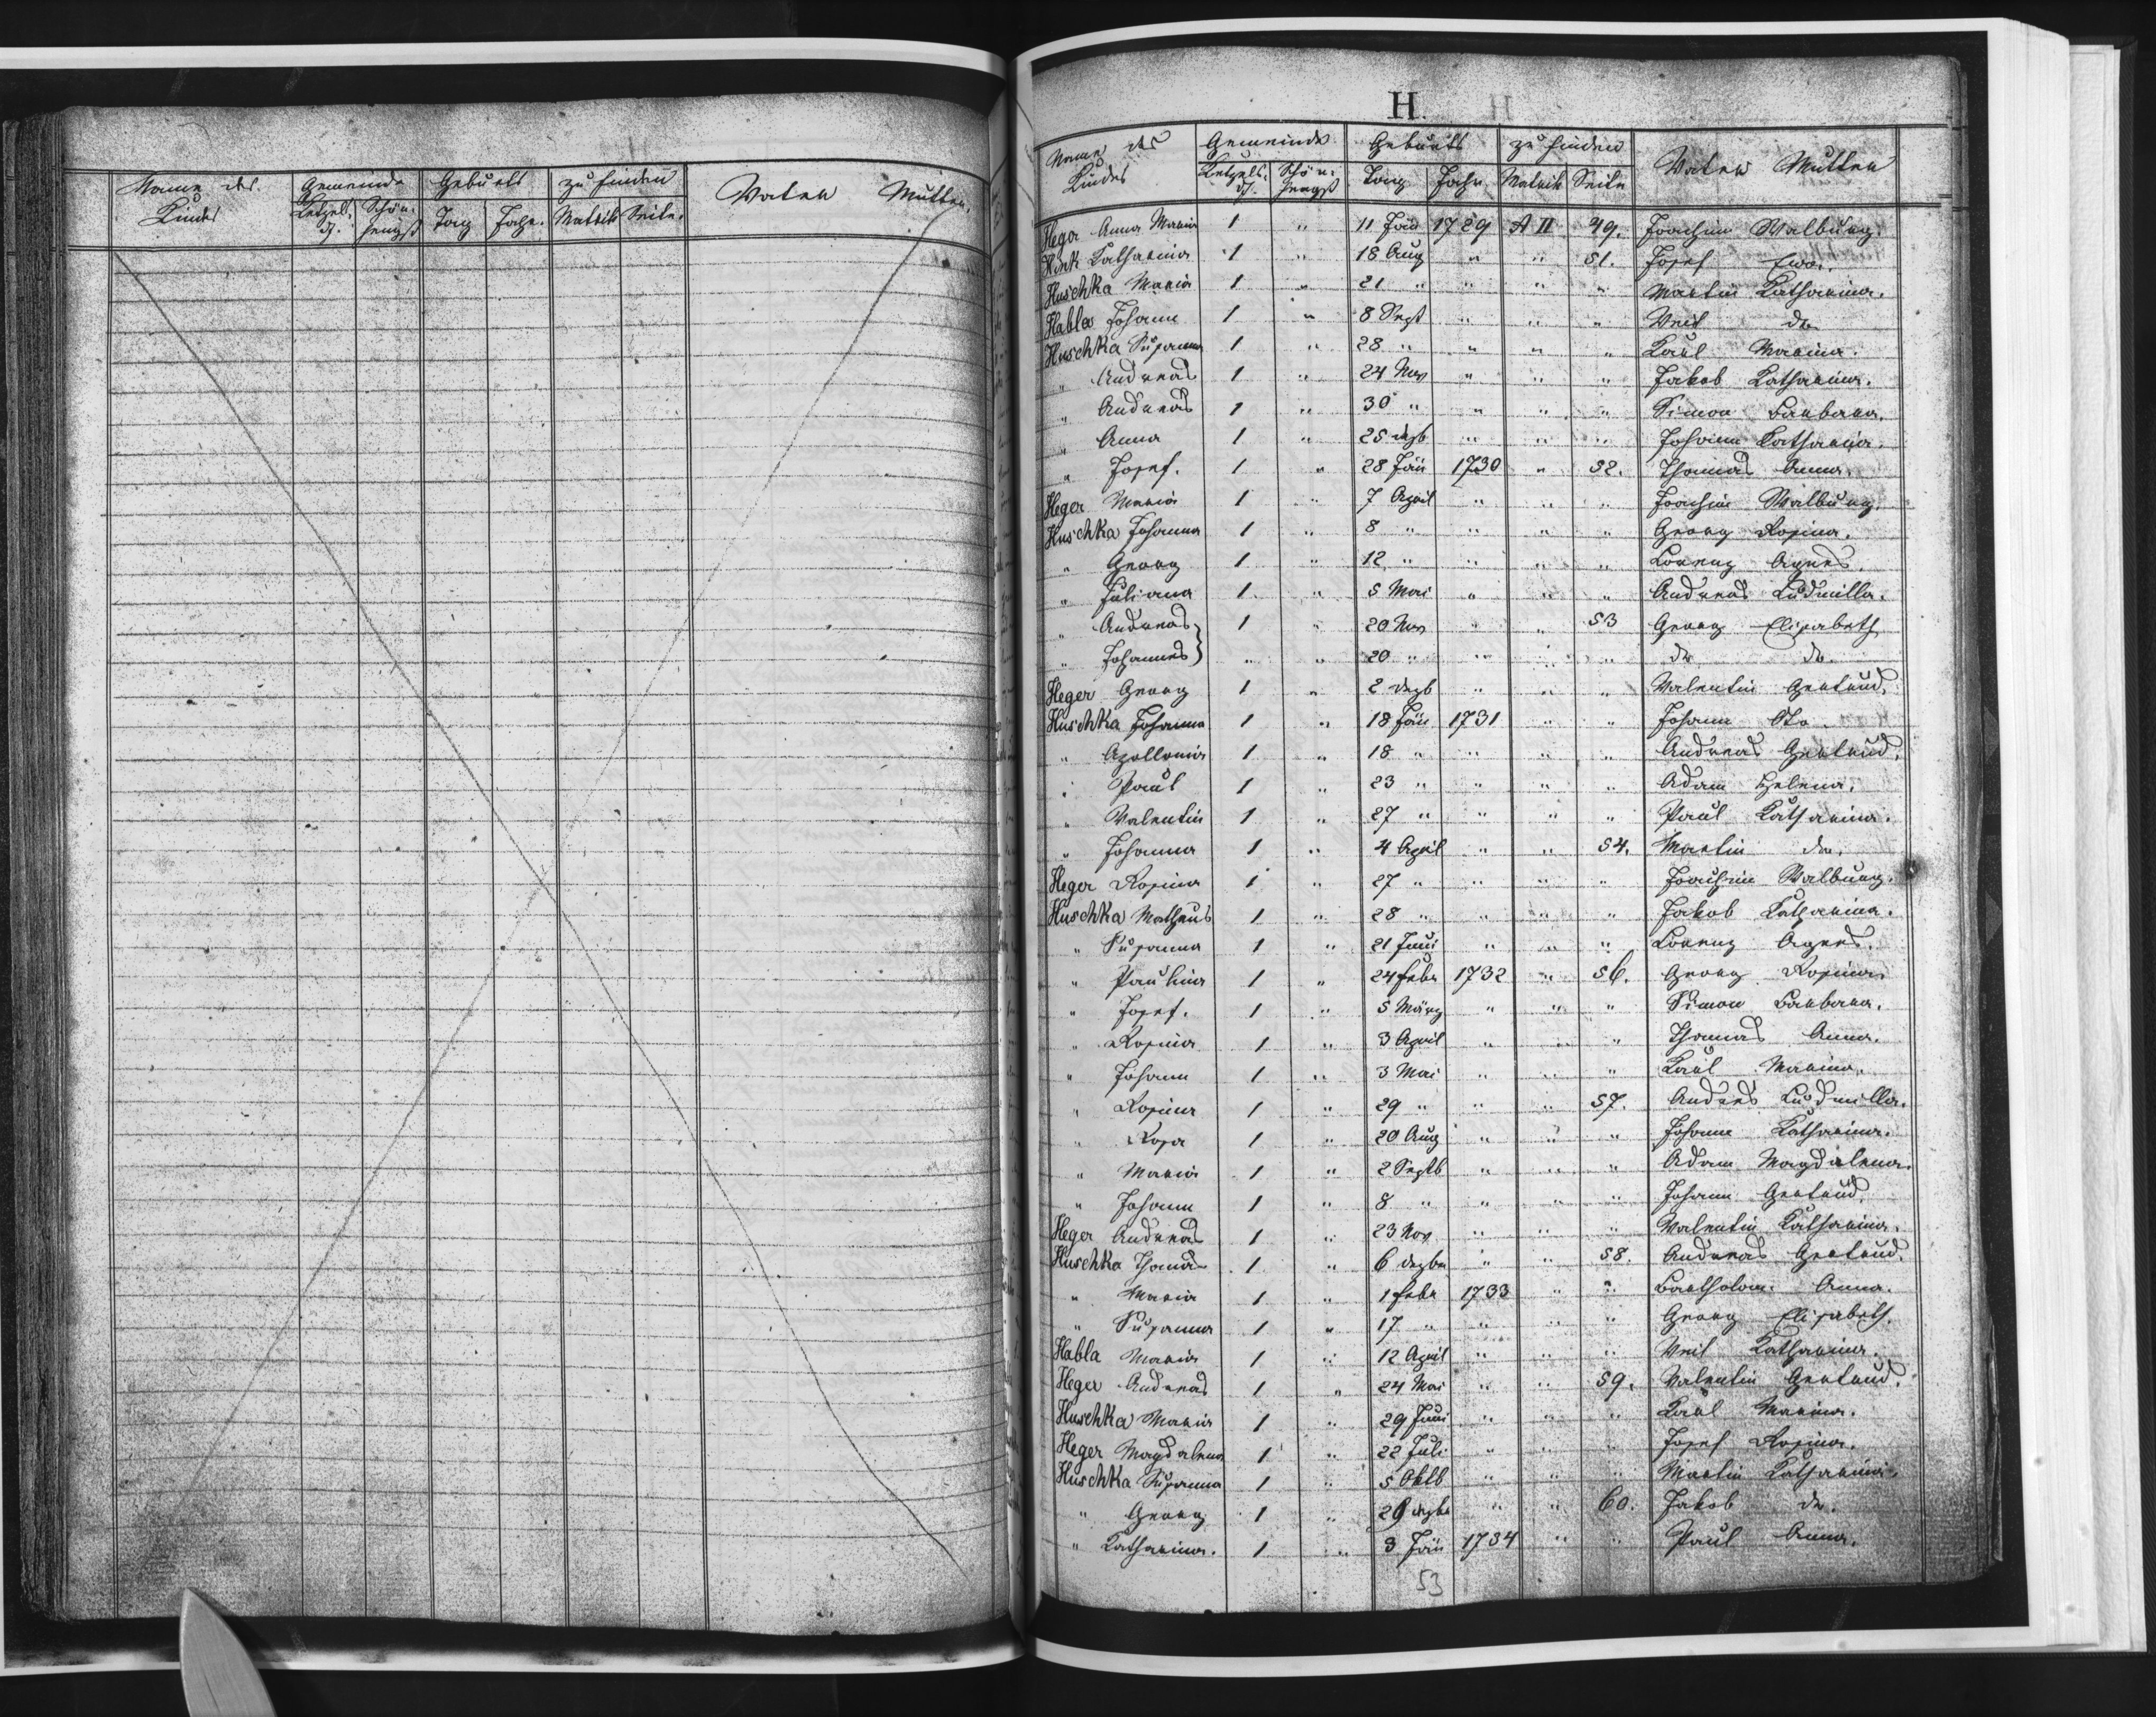 Name des Kindes Gemeinde Geburts zu finden Vater Mutter.
Ketzelsd. Schönhengst Tag Jahr. Matrik Seite.
H.
Name des Kindes Gemeinde Geburts zu finden Vater Mutter
Ketzelsd. Schönhengst Tag Jahr Matrik Seite
Heger Anna Maria 1 " 11 Jän 1729 A II 49. Joachim Walburg.
Hink Katharina 1 " 18 Aug " " 51. Josef Eva.
Huschka Maria 1 " 21 " " " " Martin Katharina.
Habla Johann 1 " 8 Sept " " " Veit do
Huschka Susanna 1 " 28 " " " " Karl Marina.
" Andreas 1 " 24 Nov " " " Jakob Katharina.
" Andreas 1 " 30 " " " " Simon Barbara.
" Anna 1 " 25 dezb " " " Johann Katharina.
" Josef. 1 " 28 Jän 1730 " 52. Thomas Anna.
Heger Maria 1 " 7 April " " " Joachim Walburg.
Huschka Johanna 1 " 8 " " " " Georg Rosina.
" Georg 1 " 12 " " " " Lorenz Agnes.
" Juliana 1 " 5 Mai " " " Andreas Ludmilla.
" Andreas } 1 " 20 Nov " " 53 Georg Elisabeth
" Johannes } " " 20 " " " " do do.
Heger Georg 1 " 2 dezb " " " Valentin Gertrud.
Huschka Johanna 1 " 18 Jän 1731 " " Johann
" Apollonia 1 " 18 " " " " Andreas Gertrud.
" Paul 1 " 23 " " " " Adam Helena.
" Valentin 1 " 27 " " " " Paul Katharina.
" Johanna 1 " 4 April " " 54. Martin do.
Heger Rosina 1 " 27 " " " " Joachim Walburg.
Huschka Matheus 1 " 28 " " " " Jakob Katharina.
" Susanna 1 " 21 Juni " " " Lorenz Agnes.
" Paulina 1 " 24 febr 1732 " 56. Georg Rosina
" Josef. 1 " 5 März " " " Simon Barbara.
" Rosina 1 " 3 April " " " Thomas Anna.
" Johann 1 " 3 Mai " " " Karl Marina.
" Rosina 1 " 29 " " " 57. Andreas Ludmilla.
" Rosa 1 " 20 Aug " " " Johann Katharina.
" Maria 1 " 2 Septb " " " Adam Magdalena.
" Johann 1 " 8 " " " " Johann Gertrud.
Heger Andreas 1 " 23 Nov " " " Valentin Katharina.
Huschka Thomas 1 " 6 dezbr " " 58. Andreas Gertrud.
" Maria 1 " 1 febr 1733 " " Bartholom. Anna.
" Susanna 1 " 17 " " " " Georg Elisabeth.
Habla Maria 1 " 12 April " " " Veit Katharina.
Heger Andreas 1 " 24 Mai " " 59. Valentin Gertrud.
Huschka Maria 1 " 29 Juni " " " Karl Marina.
Heger Magdalena 1 " 22 Juli " " " Josef Rosina.
Huschka Susanna 1 " 5 Oktb " " " Martin Katharina.
" Georg 1 " 29 dezbr " " 60. Jakob do.
" Katharina. 1 " 3 Jän 1734 " " Paul Anna.
53